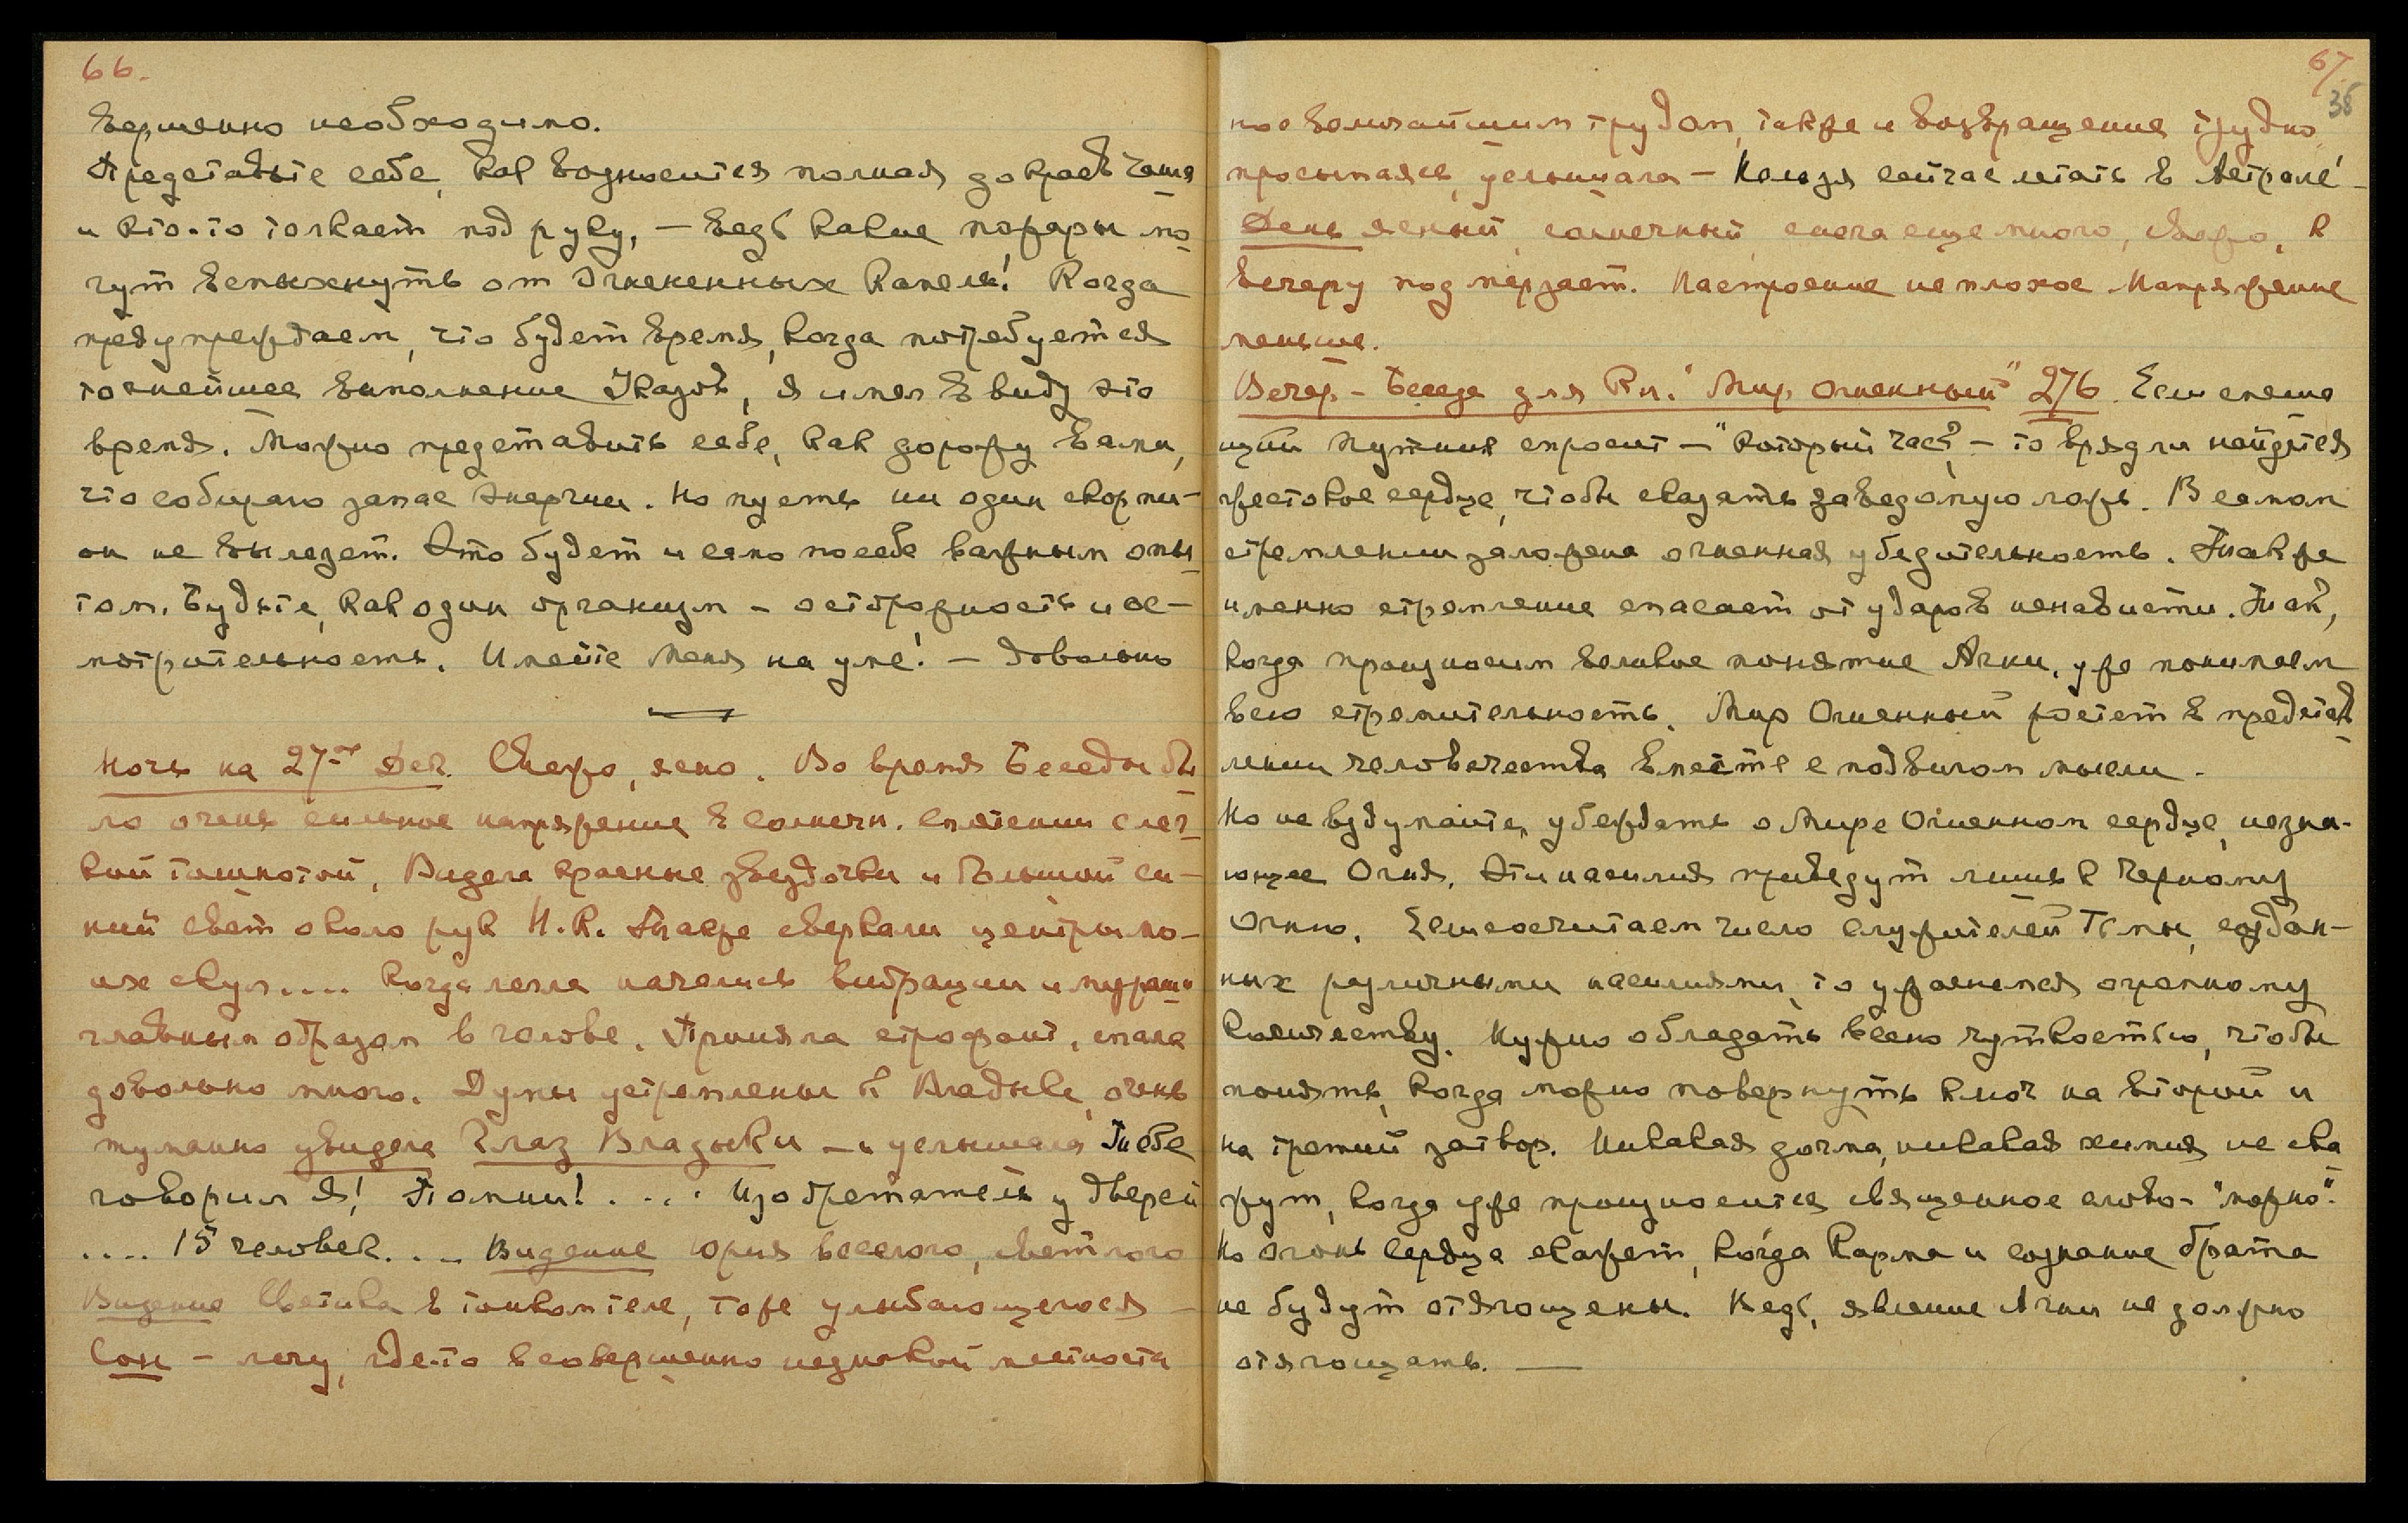 66.
вершенно необходимо.
Представьте себе, как возносится полная до краев чаша
и кто-то толкает под руку, — ведь какие пожары мо-
гут вспыхнуть от Огненных капель! Когда
предупреждаем, что будет время, когда потребуется
точнейшее выполнение Указов, Я имел в виду это
время. Можно представить себе, как дорожу вами,
что собираю запас энергии. Но пусть ни один скорпи-
он не вылезет. Это будет и само по себе важным опы-
том. Будьте, как один организм — осторожность и ос-
мотрительность. Имейте Меня на уме! — Довольно
Ночь на 27-ое Дек. Свежо, ясно. Во время Беседы бы-
ло очень сильное напряжение в солнечн. сплетении с лег-
кой тошнотой. Видела красные звездочки и большой си-
ний свет около рук Н.К. Также сверкали центры мо-
их скул.... Когда легла начались вибрации и мураши
главным образом в голове. Приняла строфант, спала
довольно много. Думы устремлены к Владыке, очень
туманно увидела Глаз Владыки — и услышала Тебе
говорил Я! Помни! .... Изобретатель у дверей
.... 15 человек.... Видение Юрия веселого, светлого
Видение Светика в тонком теле, тоже улыбающегося —
Сон — лечу, где-то в совершенно незнакомой местности
67.
38
но с величайшим трудом, также и возвращение трудно
просыпаясь, услышала — Нельзя сейчас летать в Астрале! —
День ясный, солнечный снега еще много, свежо, к
вечеру подмерзает. Настроение неплохое. Напряжение
меньше.
Вечер — Беседа для Кн. "Мир Огненный" 276. Если спеша-
щий путник спросит — "который час?" — то вряд ли найдется
жестокое сердце, чтобы сказать заведомую ложь. В самом
стремлении заложена огненная убедительность. Также
именно стремление спасает от ударов ненависти. Так,
когда произносим великое понятие Агни, уже понимаем
всю стремительность. Мир Огненный растет в представ-
лении человечества вместе с подвигом мысли.
Но не вздумайте, убеждать о Мире Огненном сердце, незна-
ющее Огня. Эти насилия приведут лишь к Черному
Огню. Если сосчитаем число служителей Тьмы, создан-
ных различными насилиями, то ужаснемся огромному
количеству. Нужно обладать всею чуткостью, чтобы
понять, когда можно повернуть ключ на второй и
на третий затвор. Никакая догма, никакая химия не ска-
жут, когда уже произносится священное слово — "можно".
Но огонь Сердца скажет, когда карма и сознание брата
не будут отягощены. Ведь, явление Агни не должно
отягощать. —